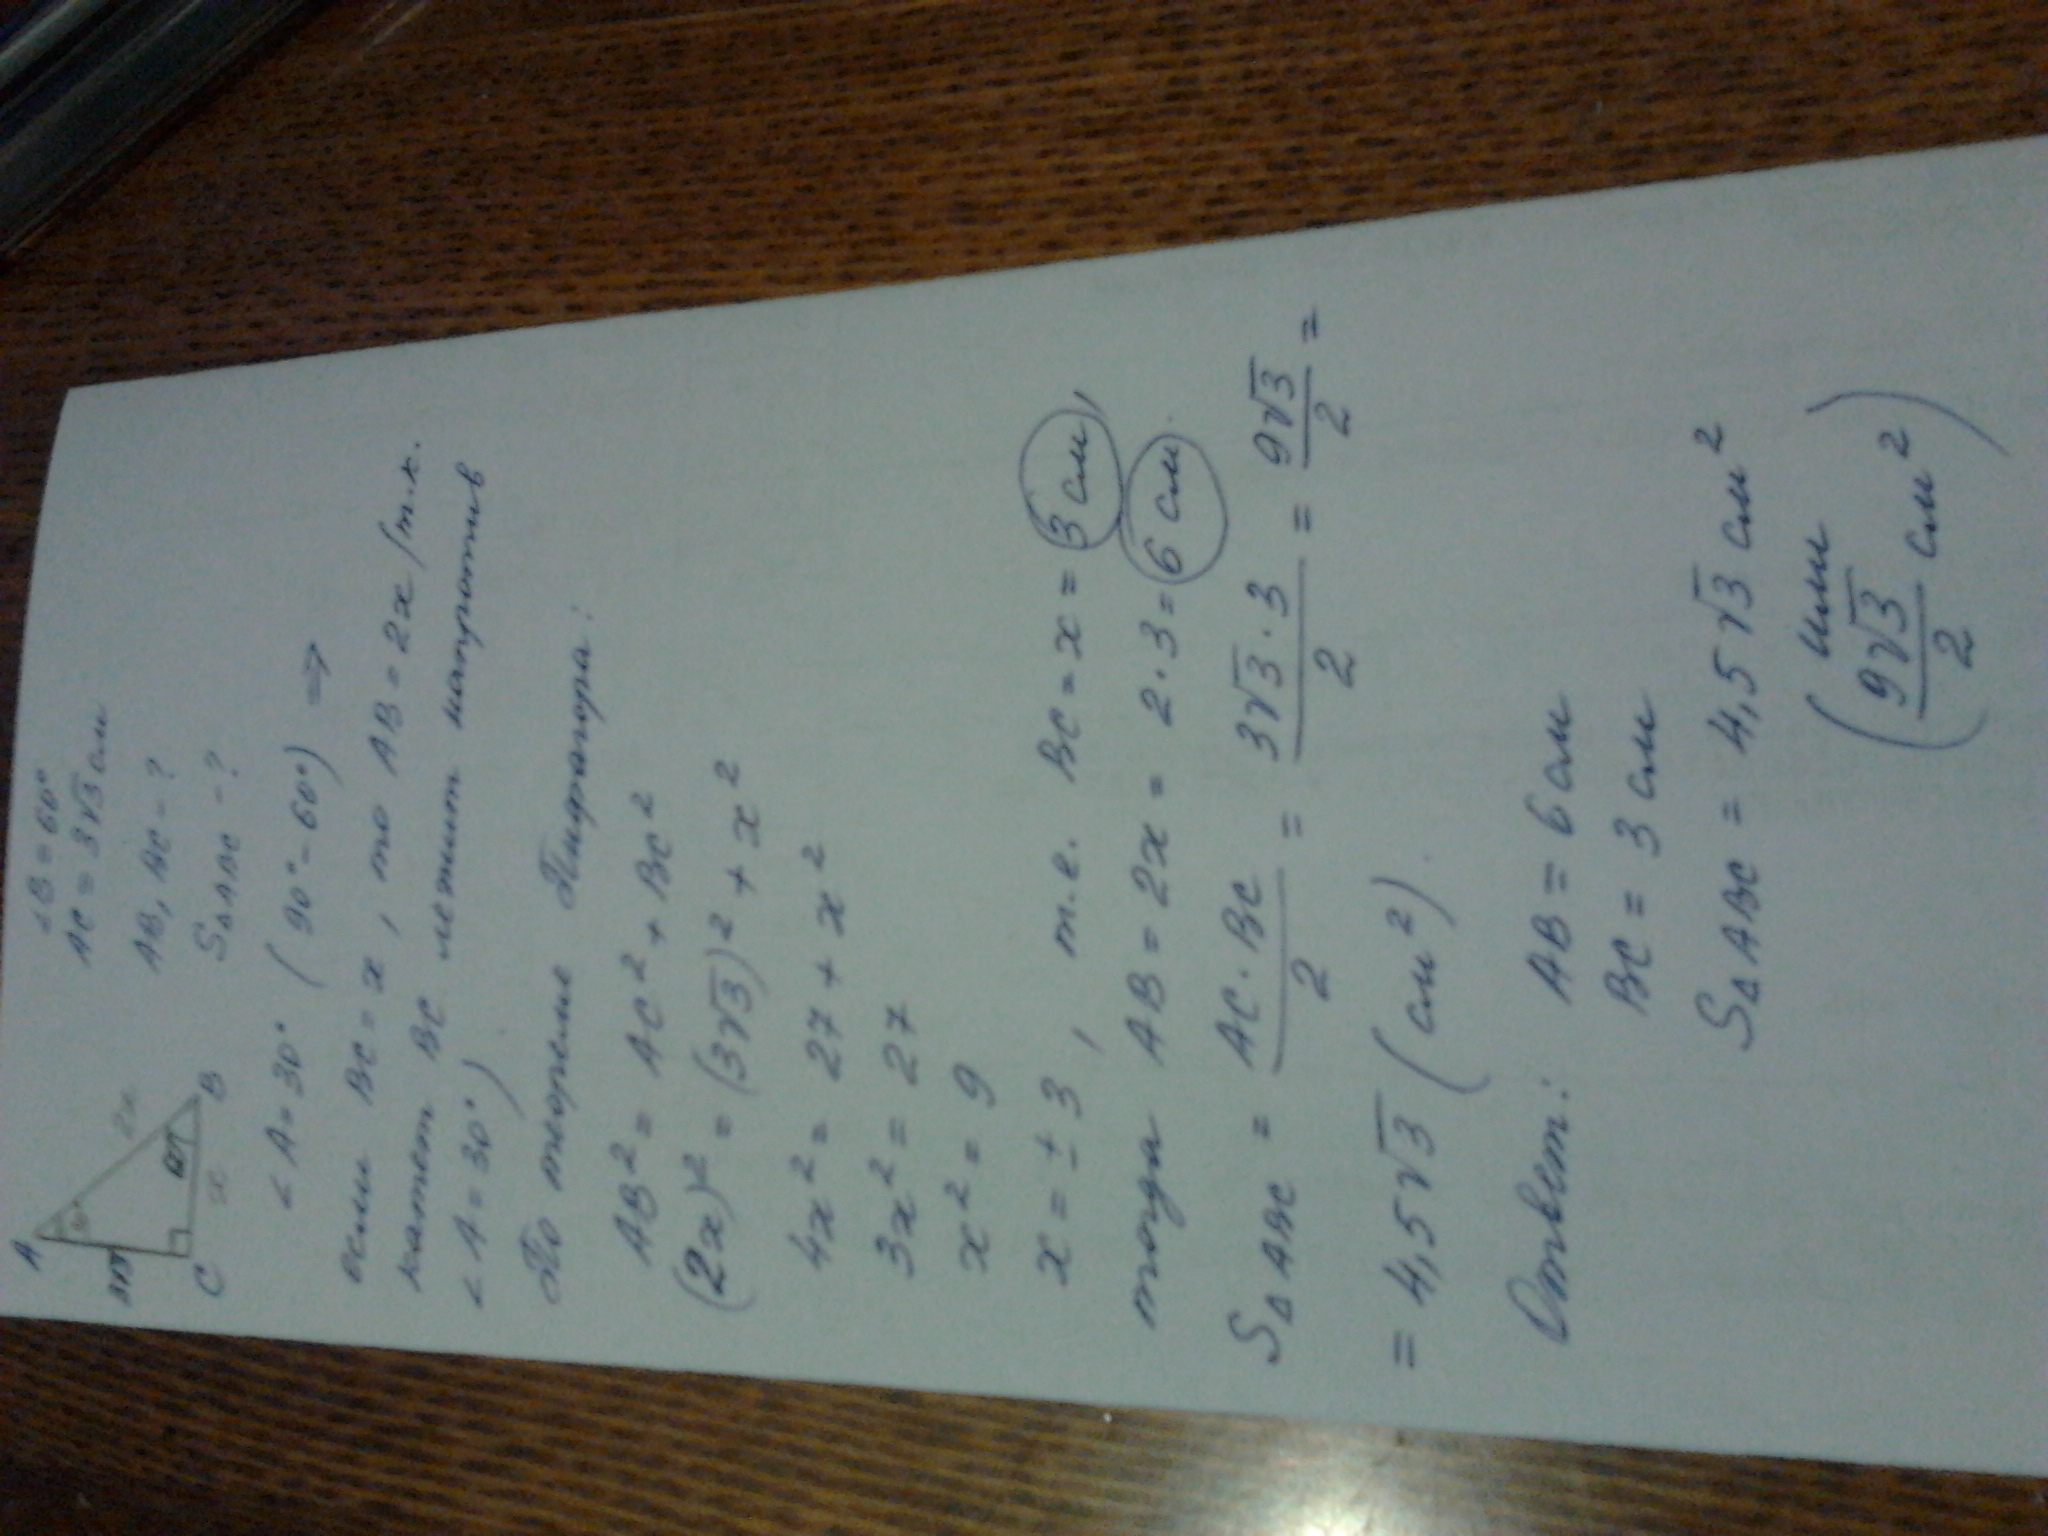 ∠B = 60°
AC = 3√3 см
AB, BC - ?
S△ABC - ?
A
2x
C
x
B
∠A = 30° (90° - 60°) ⇒
если BC = x, то AB = 2x (т.к.
катет BC лежит напротив
∠A = 30°)
По теореме Пифагора:
AB² = AC² + BC²
(2x)² = (3√3)² + x²
4x² = 27 + x²
3x² = 27
x² = 9
x = ± 3, т.е. BC = x = 3 см,
тогда AB = 2x = 2·3 = 6 см.
S△ABC = AC·BC/2 = 3√3·3/2 = 9√3/2 =
= 4,5√3 (см²).
Ответ: AB = 6 см
BC = 3 см
S△ABC = 4,5√3 см²
(или 9√3/2 см²)